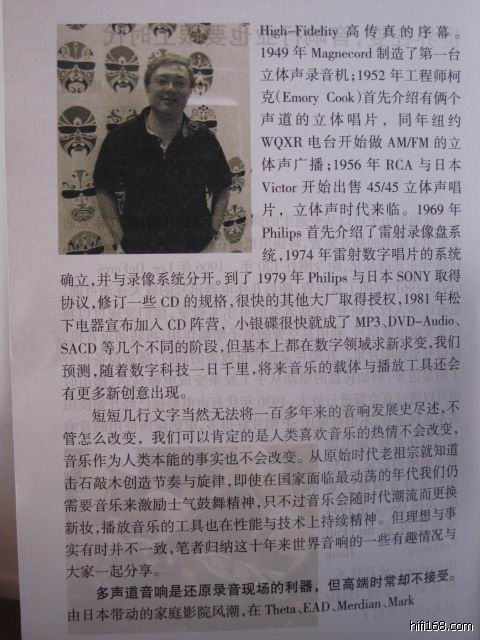 High-Fidelity 高传真的序幕。
1949 年 Magnecord 制造了第一台
立体声录音机;1952 年工程师柯
克(Emory Cook)首先介绍有俩个
声道的立体唱片，同年纽约
WQXR 电台开始做 AM/FM 的立
体声广播;1956 年 RCA 与日本
Victor 开始出售 45/45 立体声唱
片，立体声时代来临。1969 年
Philips 首先介绍了雷射录像盘系
统,1974 年雷射数字唱片的系统
确立,并与录像系统分开。到了 1979 年 Philips 与日本 SONY 取得
协议，修订一些 CD 的规格,很快的其他大厂取得授权,1981 年松
下电器宣布加入 CD 阵营，小银碟很快就成了 MP3、DVD-Audio、
SACD 等几个不同的阶段,但基本上都在数字领域求新求变,我们
预测,随着数字科技一日千里,将来音乐的载体与播放工具还会
有更多新创意出现。
短短几行文字当然无法将一百多年来的音响发展史尽述,不
管怎么改变，我们可以肯定的是人类喜欢音乐的热情不会改变,
音乐作为人类本能的事实也不会改变。从原始时代老祖宗就知道
击石敲木创造节奏与旋律,即使在国家面临最动荡的年代我们仍
需要音乐来激励士气鼓舞精神,只不过音乐会随时代潮流而更换
新妆,播放音乐的工具也在性能与技术上持续精神。但理想与事
实有时并不一致,笔者归纳这十年来世界音响的一些有趣情况与
大家一起分享。
多声道音响是还原录音现场的利器，但高端时常却不接受。
由日本带动的家庭影院风潮,在 Theta、EAD、Merdian、Mark
hifi168.com